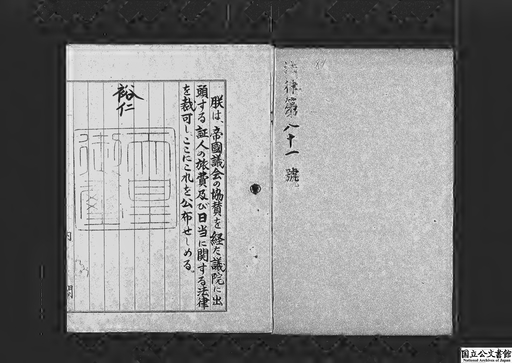 法律第八十一號
朕は、帝國議会の協賛を経た議院に出
頭する証人の旅費及び日当に関する法律
を裁可し、ここにこれを公布せしめる。
裕仁
天皇
御璽
国立公文書館
National Archives of Japan